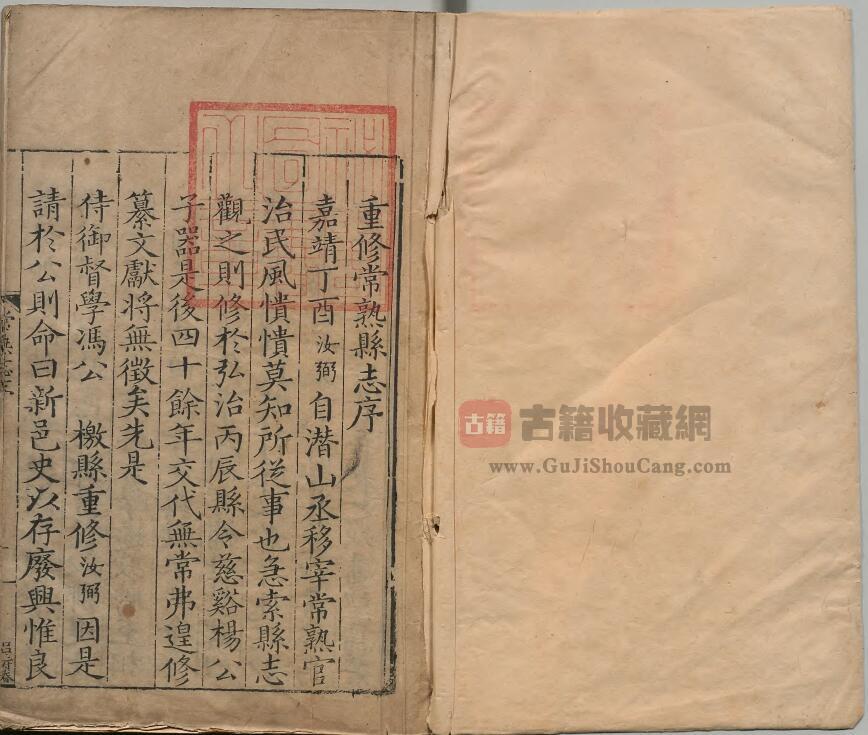 重修常熟縣志序
嘉靖丁酉汝弼自潛山丞移宰常熟官
治民風憒憒莫知所從事也急索縣志
觀之則修於弘治丙辰縣令慈谿楊公
子器是後四十餘年交代無常弗遑修
纂文獻將無徵矣先是
侍御督學馮公 檄縣重修汝弼因是
請於公則命曰新邑史以存廢興惟良
古籍
古籍收藏網
www.GuJiShouCang.com